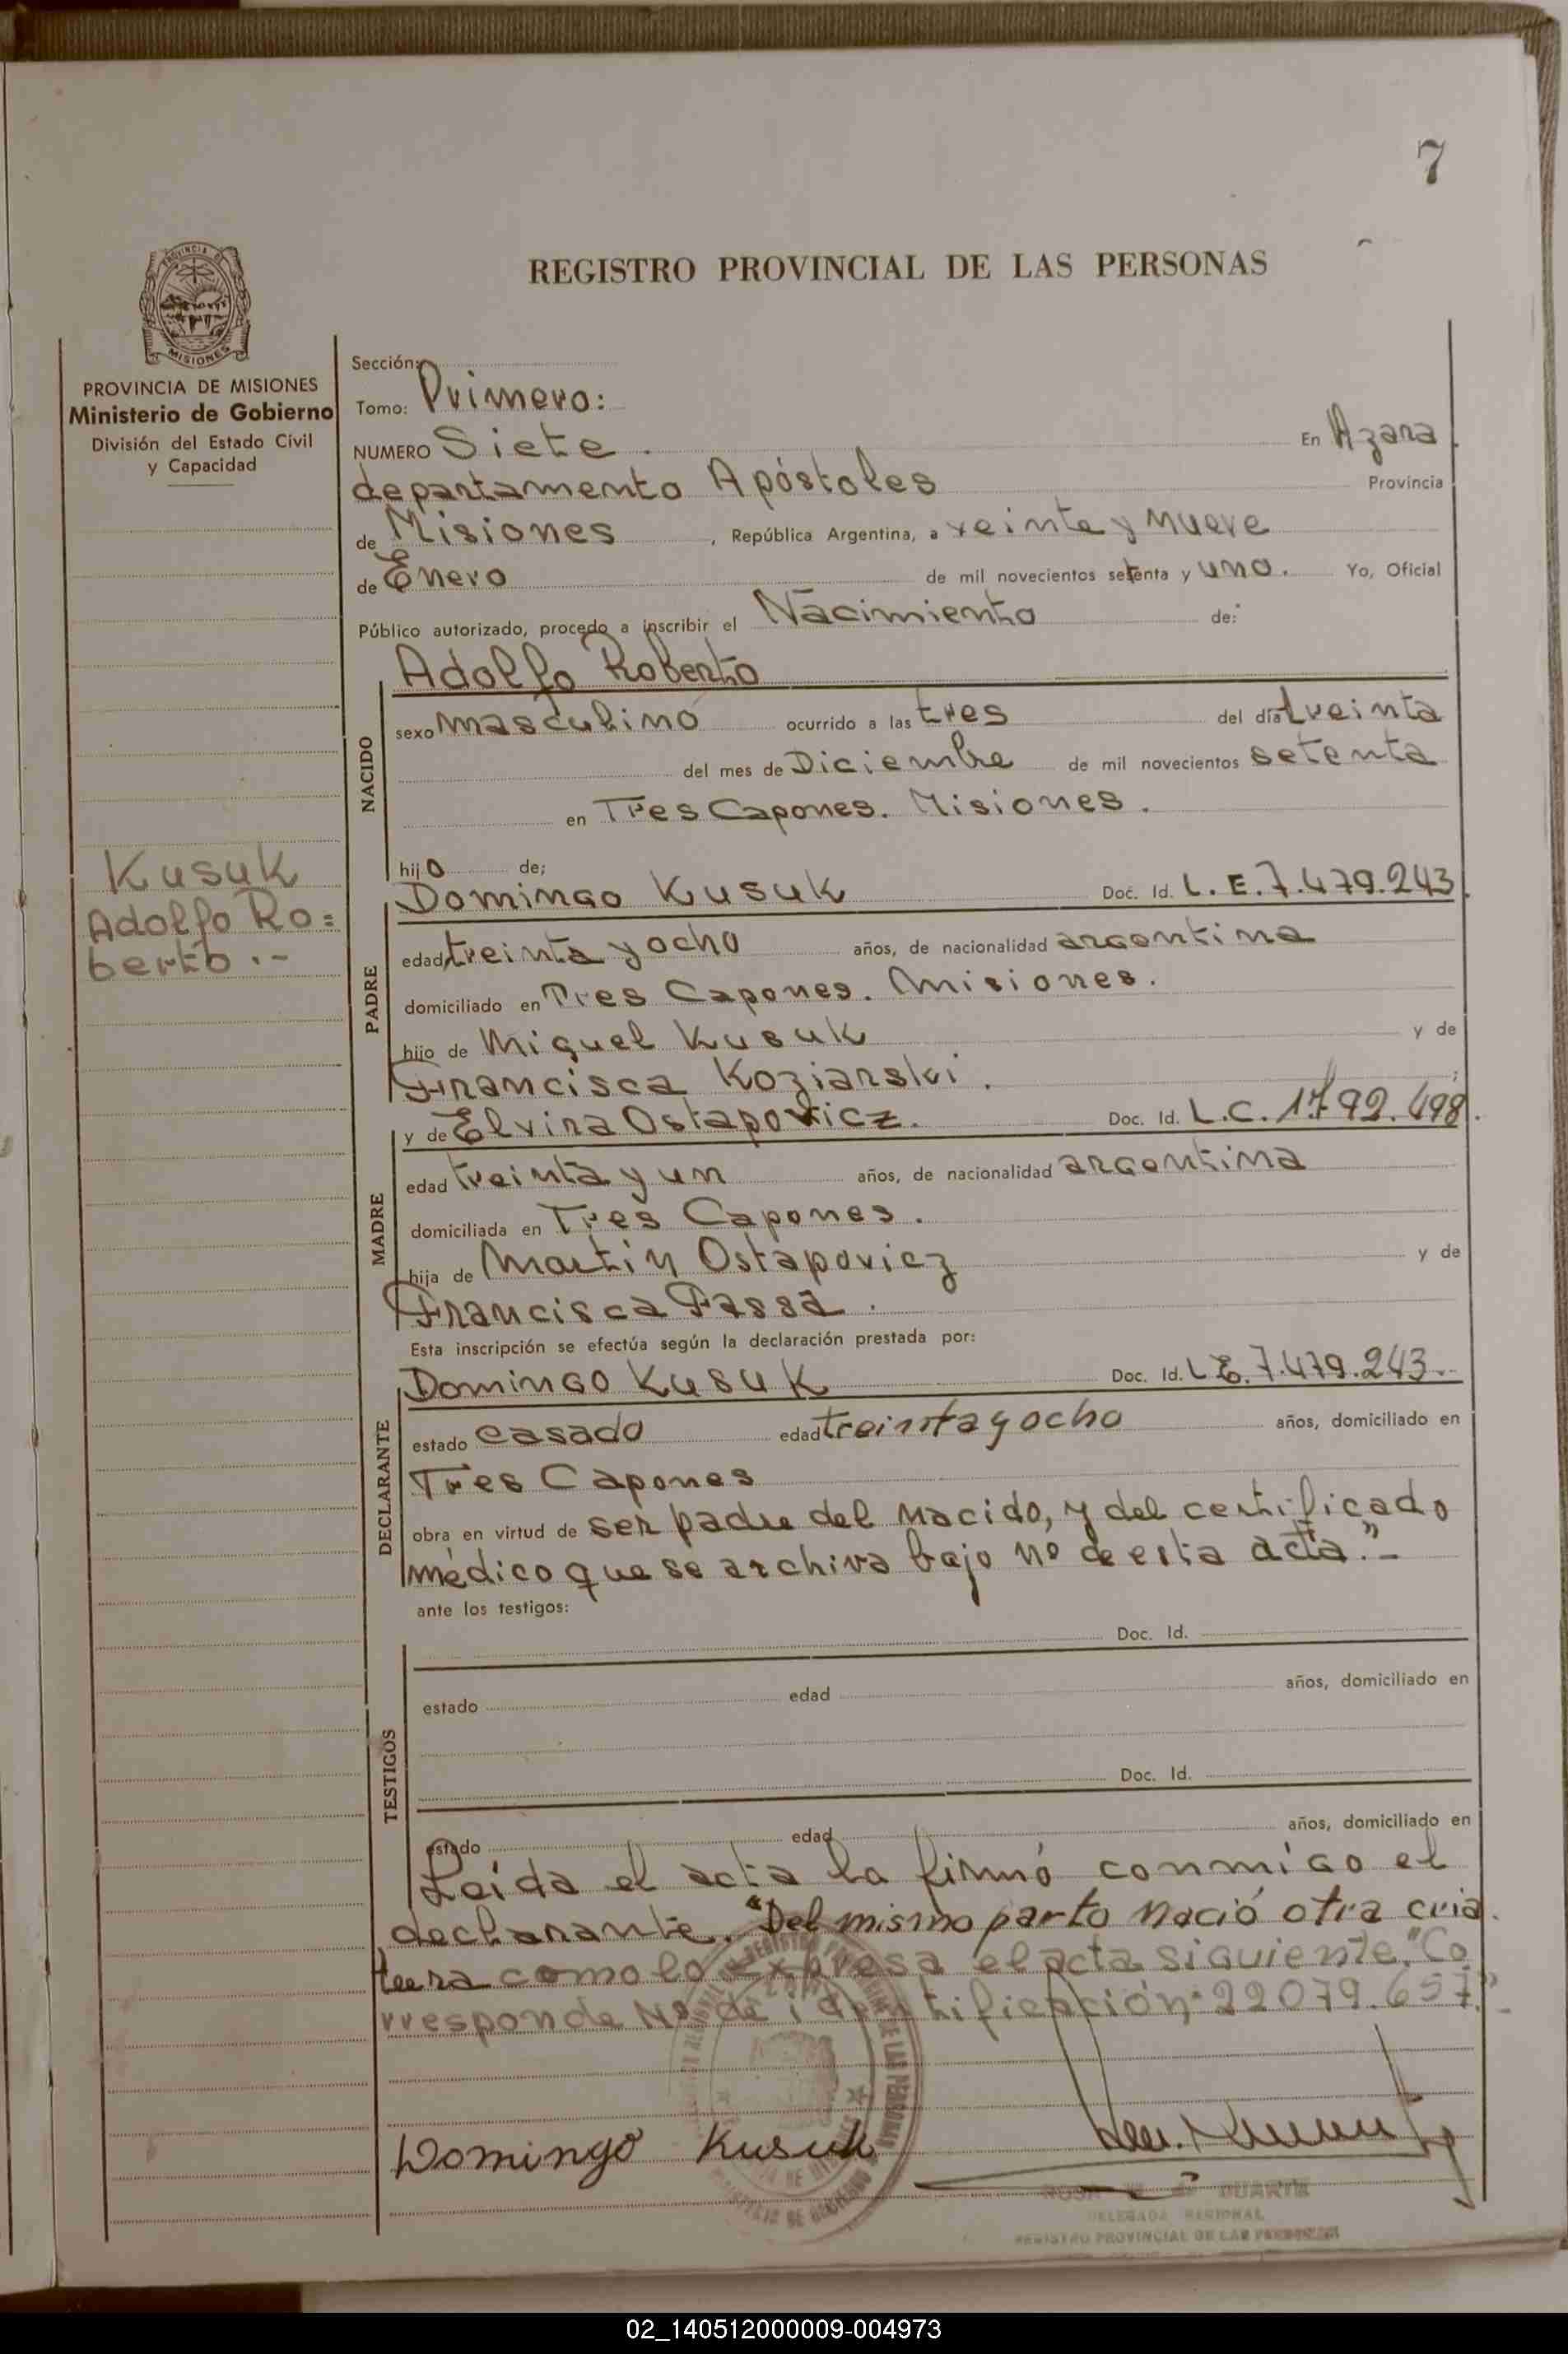 7
REGISTRO PROVINCIAL DE LAS PERSONAS
PROVINCIA DE
MISIONES
PROVINCIA DE MISIONES
Ministerio de Gobierno
División del Estado Civil
y Capacidad
Kusuk
Adolfo Ro=
berto.-
Sección:
Tomo: Primero:
NUMERO Siete. En Azara
departamento Apóstoles Provincia
de Misiones, República Argentina, a veinte y nueve
de Enero de mil novecientos setenta y uno. Yo, Oficial
Público autorizado, procedo a inscribir el Nacimiento de:
Adolfo Roberto
NACIDO
sexo masculino ocurrido a las tres del día treinta
del mes de Diciembre de mil novecientos setenta
en Tres Capones. Misiones.
hijo de;
Domingo Kusuk Doc. Id. L. E. 7.479.243
PADRE
edad treinta y ocho años, de nacionalidad argentina
domiciliado en Tres Capones. Misiones.
hijo de Miguel Kusuk y de
Francisca Koziarski.
y de Elvira Ostapovicz. Doc. Id. L.C. 1.792.498.
MADRE
edad treinta y un años, de nacionalidad argentina
domiciliada en Tres Capones.
hija de Martín Ostapovicz y de
Francisca Passa.
Esta inscripción se efectúa según la declaración prestada por:
Domingo Kusuk Doc. Id. L.E. 7.479.243.-
DECLARANTE
estado casado edad treinta y ocho años, domiciliado en
Tres Capones
obra en virtud de ser padre del nacido, y del certificado
médico que se archiva bajo nº de esta acta."-
ante los testigos:
Doc. Id.
TESTIGOS
estado edad años, domiciliado en
Doc. Id.
estado edad años, domiciliado en
Leída el acta la firmó conmigo el
declarante. "Del mismo parto nació otra cria
tura como lo expresa el acta siguiente." Co
rresponde Nº de identificación: 22079.657."-
Domingo Kusuk
DUARTE
DELEGADA REGIONAL
REGISTRO PROVINCIAL DE LAS PERSONAS
02_140512000009-004973